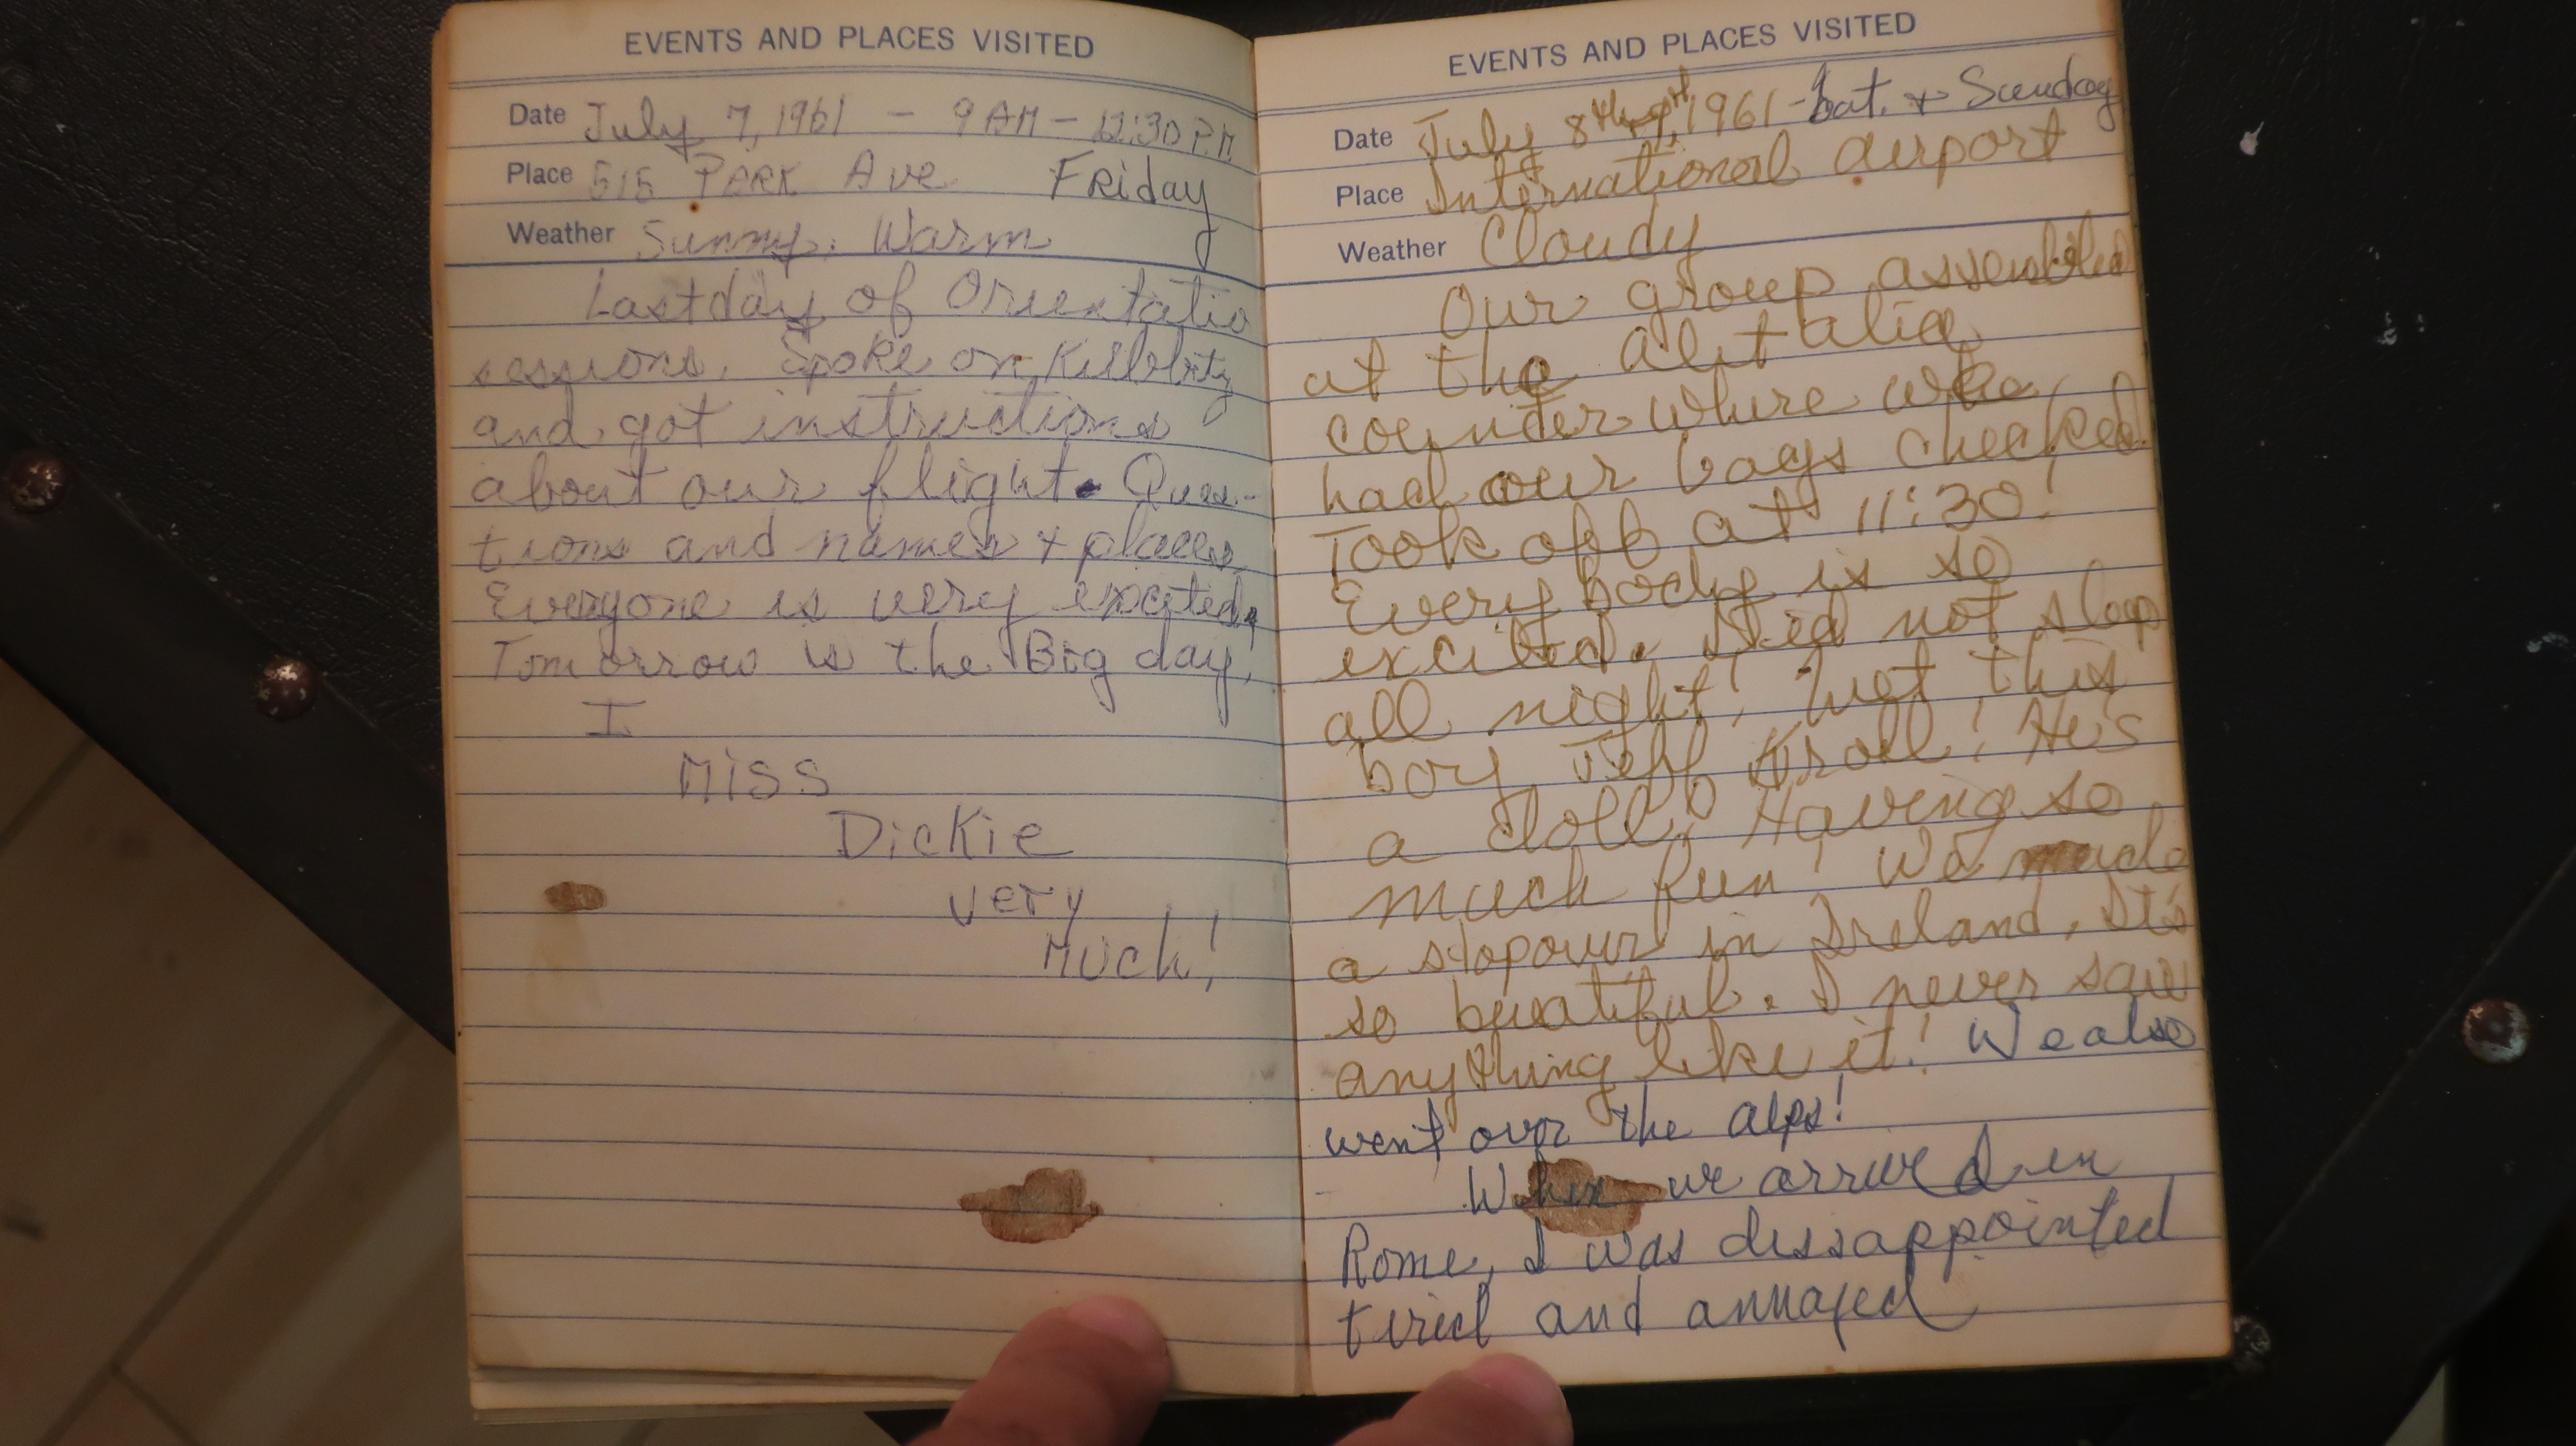 EVENTS AND PLACES VISITED
Date July 7, 1961 - 9 AM - 12:30 P.M
Place 515 PARK Ave Friday
Weather Sunny, Warm
Last day of Orientatio
sessions. Spoke on Kibbutz
and got instructions
about our flight. Ques-
tions and names + places.
Everyone is very excited.
Tomorrow is the Big day!
I
Miss
Dickie
very
Much!
EVENTS AND PLACES VISITED
Date July 8th, 9th, 1961 - Sat. + Sunday
Place International airport
Weather Cloudy
Our group assembled
at the alitalia
counter where we
had our bags checked.
Took off at 11:30!
Everybody is so
excited. Did not sleep
all night! Met this
boy Jeff Kroll! He's
a doll. Having so
much fun! We made
a stopover in Ireland, It's
so beautiful. I never saw
anything like it! We also
went over the alps!
When we arrived in
Rome, I was dissappointed
tired and annoyed